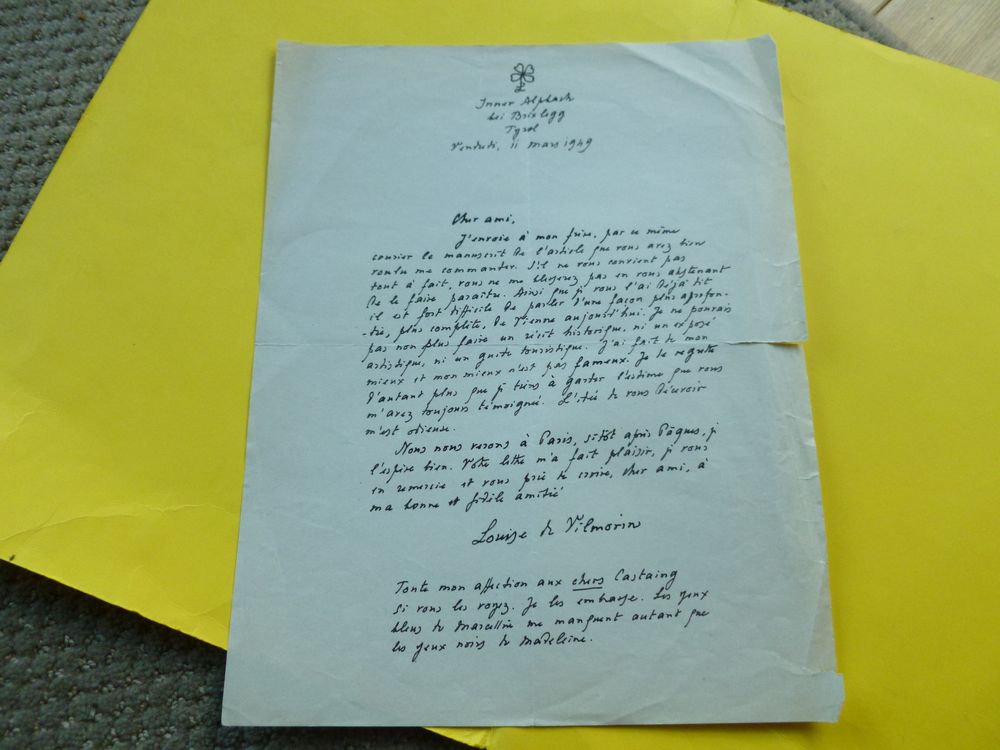 L
Inner Alpbach
bei Brixlegg
Tyrol
Vendredi, 11 mars 1949
Cher ami,
J'envoie à mon frère, par ce même
courier le manuscrit de l'article que vous avez bien
voulu me commander. S'il ne vous convient pas
tout à fait, vous ne me blesserez pas en vous abstenant
de le faire paraître. Ainsi que je vous l'ai déjà dit
il est fort difficile de parler d'une façon plus aprofon-
-die, plus complète, de Vienne aujourd'hui. Je ne pouvais
pas non plus faire un récit historique, ni un exposé
artistique, ni un guide touristique. J'ai fait de mon
mieux et mon mieux n'est pas fameux. Je le regrette
d'autant plus que je tiens à garder l'estime que vous
m'avez toujours témoigné. L'idée de vous décevoir
m'est odieuse.
Nous nous verons à Paris, sitôt après Pâques, je
l'espère bien. Votre lettre m'a fait plaisir, je vous
en remercie et vous prie de croire, cher ami, à
ma bonne et fidèle amitié
Louise de Vilmorin
Toute mon affection aux chers Castaing
si vous les voyez. Je les embrasse. Les yeux
bleus de Marcellin me manquent autant que
les yeux noirs de Madeleine.